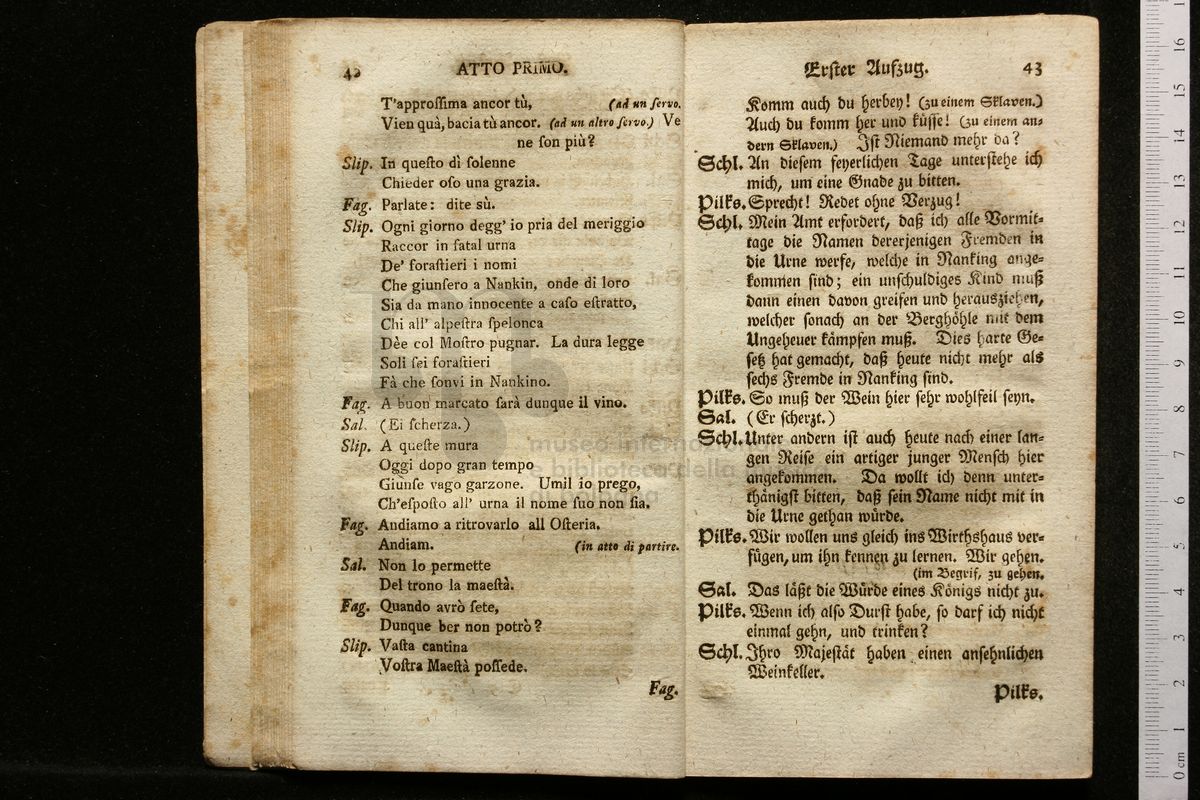 42 ATTO PRIMO.
T'approſſima ancor tù, (ad un ſervo.
Vien quà, bacia tù ancor. (ad un altro ſervo.) Ve
ne ſon più?
Slip. In queſto dì ſolenne
Chieder oſo una grazia.
Fag. Parlate: dite sù.
Slip. Ogni giorno degg' io pria del meriggio
Raccor in fatal urna
De' foraſtieri i nomi
Che giunſero a Nankin, onde di loro
Sia da mano innocente a caſo eſtratto,
Chi all' alpeſtra ſpelonca
Dèe col Moſtro pugnar. La dura legge
Soli ſei foraſtieri
Fà che ſonvi in Nankino.
Fag. A buon marcato ſarà dunque il vino.
Sal. (Ei ſcherza.)
Slip. A queſte mura
Oggi dopo gran tempo
Giunſe vago garzone. Umil io prego,
Ch'eſpoſto all' urna il nome ſuo non ſia.
Fag. Andiamo a ritrovarlo all Oſteria.
Andiam. (in atto di partire.
Sal. Non lo permette
Del trono la maeſtà.
Fag. Quando avrò ſete,
Dunque ber non potrò?
Slip. Vaſta cantina
Voſtra Maeſtà poſſede.
Fag.
Erſter Aufzug. 43
Komm auch du herbey! (zu einem Sklaven.)
Auch du komm her und küſſe! (zu einem an-
dern Sklaven.) Iſt Niemand mehr da?
Schl. An dieſem feyerlichen Tage unterſtehe ich
mich, um eine Gnade zu bitten.
Pilks. Sprecht! Redet ohne Verzug!
Schl. Mein Amt erfordert, daß ich alle Vormit-
tage die Namen dererjenigen Fremden in
die Urne werfe, welche in Nanking ange-
kommen ſind; ein unſchuldiges Kind muß
dann einen davon greifen und herausziehen,
welcher ſonach an der Berghöhle mit dem
Ungeheuer kämpfen muß. Dies harte Ge-
ſetz hat gemacht, daß heute nicht mehr als
ſechs Fremde in Nanking ſind.
Pilks. So muß der Wein hier ſehr wohlfeil ſeyn.
Sal. (Er ſcherzt.)
Schl. Unter andern iſt auch heute nach einer lan-
gen Reiſe ein artiger junger Menſch hier
angekommen. Da wollt ich denn unter-
thänigſt bitten, daß ſein Name nicht mit in
die Urne gethan würde.
Pilks. Wir wollen uns gleich ins Wirthshaus ver-
fügen, um ihn kennen zu lernen. Wir gehen.
(im Begrif, zu gehen.
Sal. Das läßt die Würde eines Königs nicht zu.
Pilks. Wenn ich alſo Durſt habe, ſo darf ich nicht
einmal gehn, und trinken?
Schl. Ihro Majeſtät haben einen anſehnlichen
Weinkeller.
Pilks.
0 cm 1 2 3 4 5 6 7 8 9 10 11 12 13 14 15 16